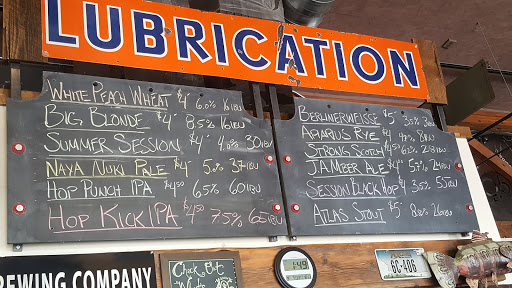 LUBRICATION
WHITE PEACH WHEAT $4 6.0% 16 IBU
BIG BLONDE $4 8.5% 16 IBU
SUMMER SESSION $4 4.0% 30 IBU
NAYA NUKI PALE $4 5.0% 37 IBU
HOP PUNCH IPA $4.50 6.5% 60 IBU
HOP KICK IPA $4.50 7.5% 65 IBU
BERLINERWEISSE $5 3.5% 3 IBU
AQUARIUS RYE $4
STRONG SCOTCH
J.A. AMBER ALE
SESSION BLACK HOP 4 3.5% 55 IBU
ATLAS STOUT $5 8.0% 26 IBU
REWING COMPANY
6C·406